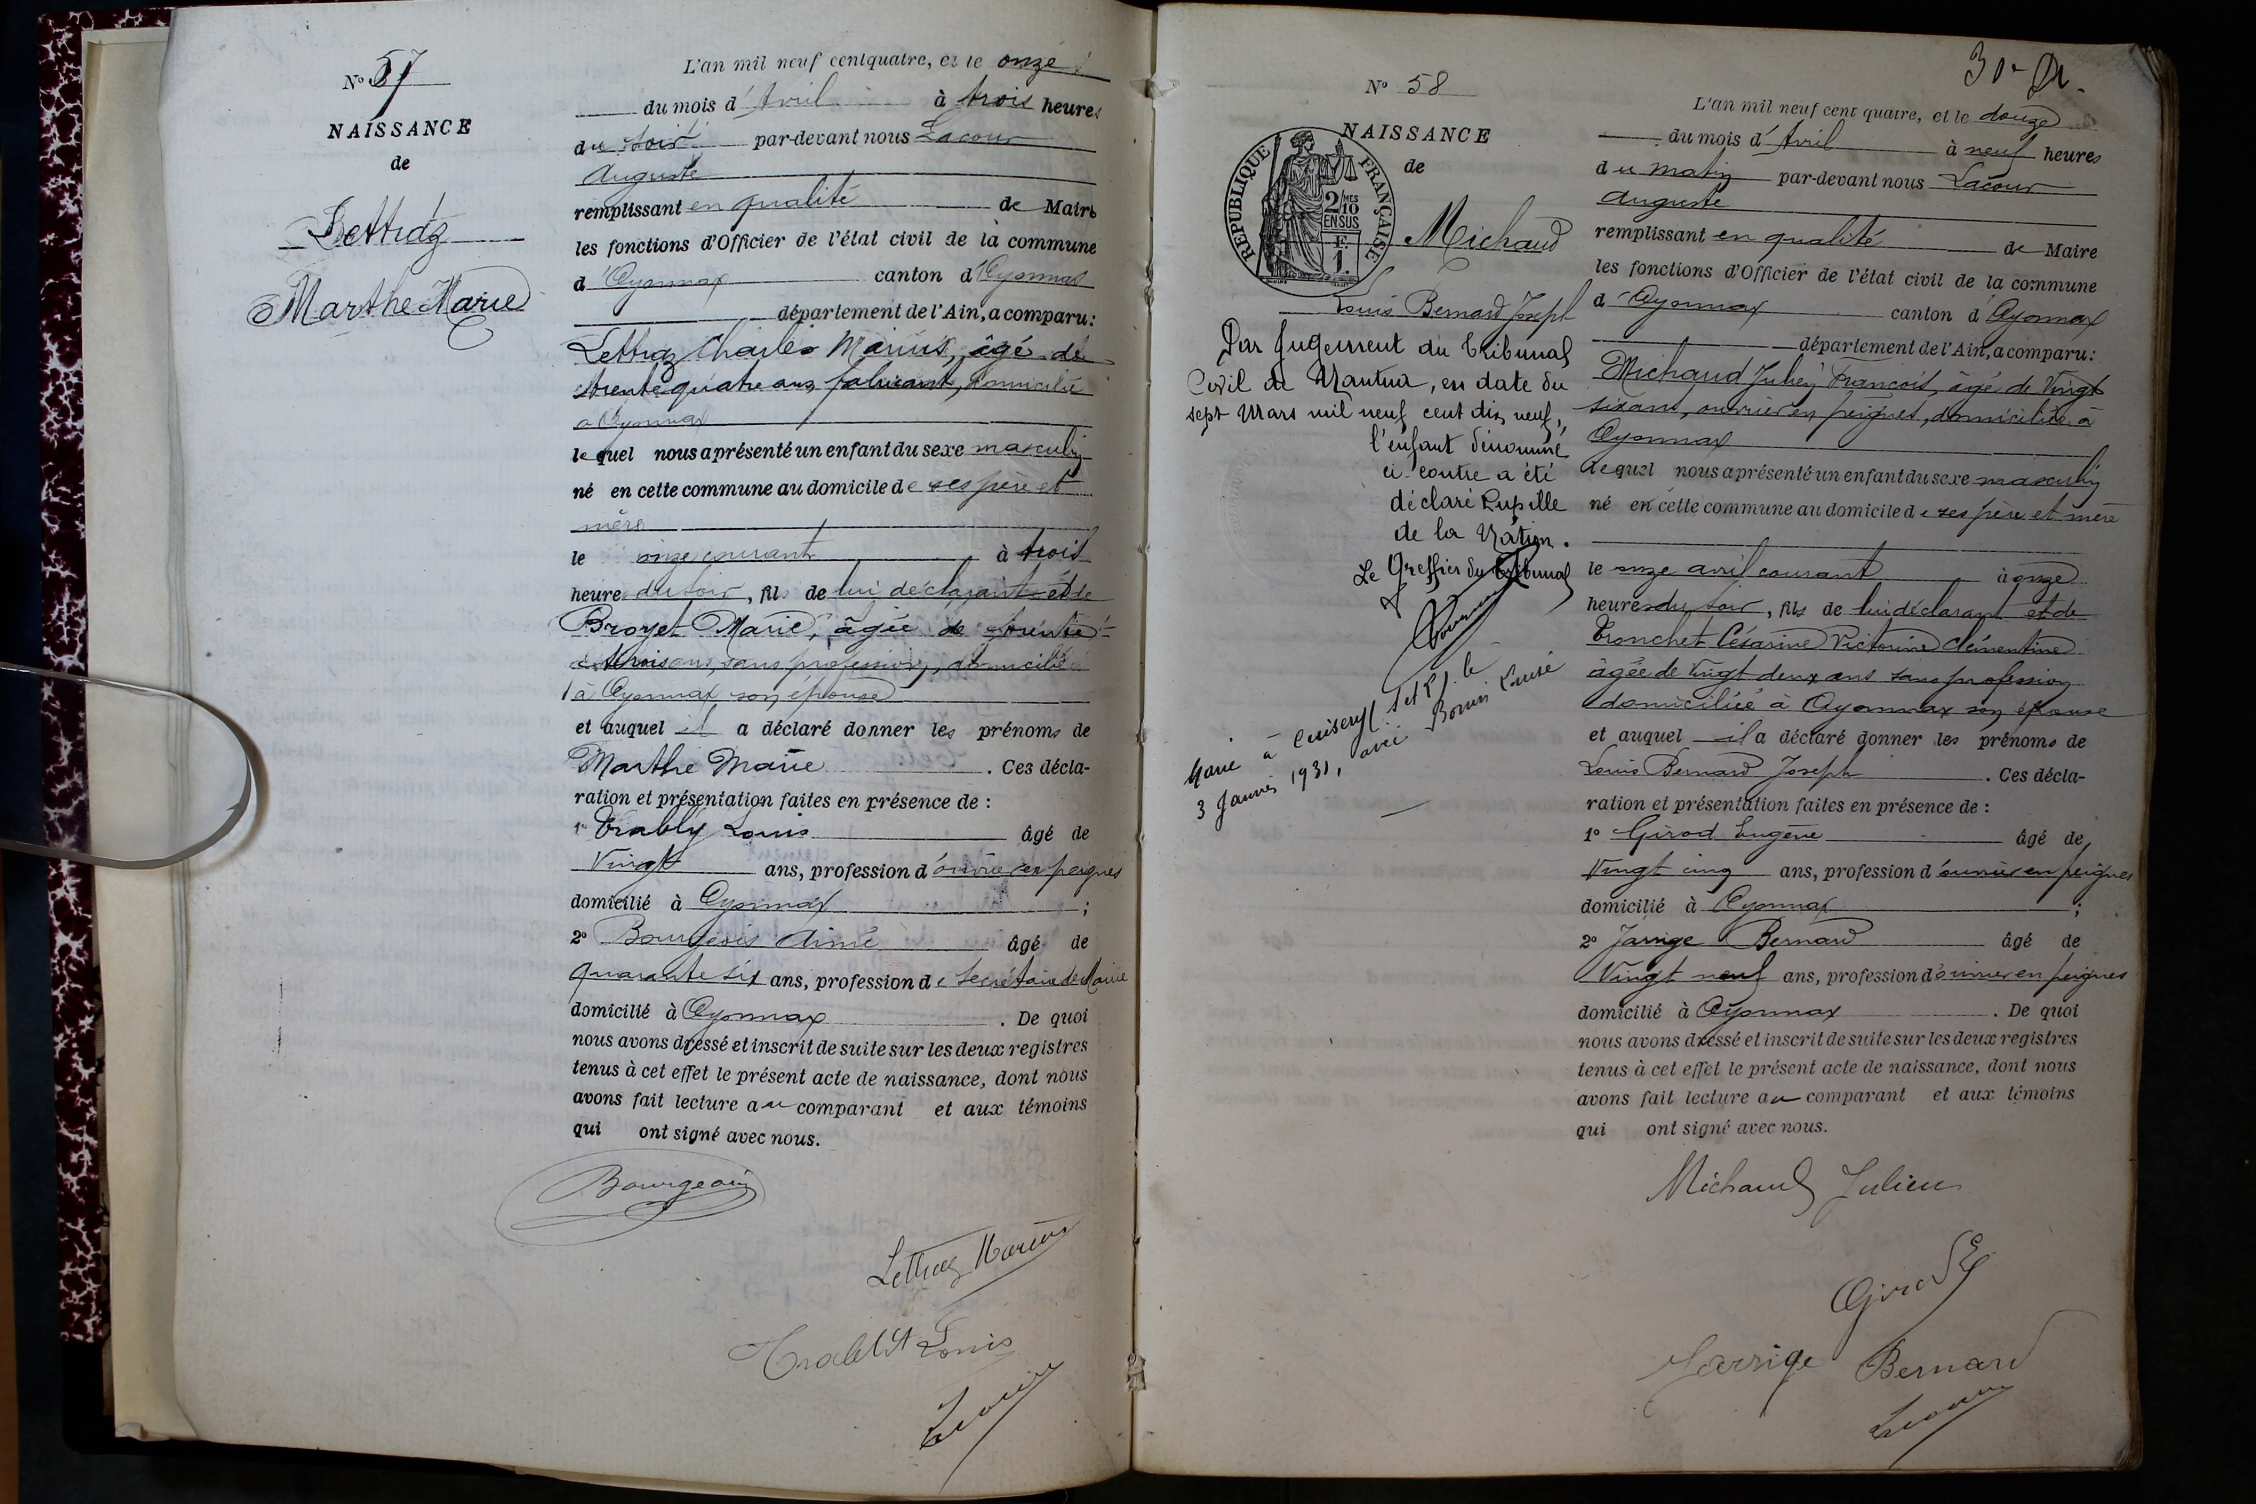 N° 57
NAISSANCE
de
Lettraz
Marthe Marie
L'an mil neuf cent quatre, et le onze
du mois d'Avril à trois heures
du soir par-devant nous Lacour
Auguste
remplissant en qualité de Maire
les fonctions d'Officier de l'état civil de la commune
d'Oyonnax canton d'Oyonnax
département de l'Ain, a comparu :
Lettraz Charles Marius, âgé de
trente quatre ans, fabricant, domicilié
à Oyonnax
lequel nous a présenté un enfant du sexe masculin
né en cette commune au domicile de ses père et
mère
le onze courant à trois
heures du soir, fils de lui déclarant et de
Broyet Marie, âgée de trente
trois ans, sans profession, domiciliée
à Oyonnax son épouse
et auquel il a déclaré donner les prénoms de
Marthe Marie. Ces décla-
ration et présentation faites en présence de :
1° Trably Louis âgé de
Vingt ans, profession d'ouvrier en peignes
domicilié à Oyonnax ;
2° Bourgeois Aimé âgé de
quarante six ans, profession de secrétaire de Mairie
domicilié à Oyonnax. De quoi
nous avons dressé et inscrit de suite sur les deux registres
tenus à cet effet le présent acte de naissance, dont nous
avons fait lecture au comparant et aux témoins
qui ont signé avec nous.
Bourgeois
Lettraz Marius
Louis
Lacour
30
N° 58
NAISSANCE
de
REPUBLIQUE FRANÇAISE
2/10 MES
EN SUS
F.
1.
Michaud
Louis Bernard Joseph
Par Jugement du Tribunal
Civil de Nantua, en date du
sept Mars mil neuf cent dix neuf,
l'enfant dénommé
ci-contre a été
déclaré Pupille
de la Nation.
Le Greffier du Tribunal
Marié à Cuisery le
3 Janvier 1931, avec Bonin Louise
L'an mil neuf cent quatre, et le douze
du mois d'Avril à neuf heures
du matin par-devant nous Lacour
Auguste
remplissant en qualité de Maire
les fonctions d'Officier de l'état civil de la commune
d'Oyonnax canton d'Oyonnax
département de l'Ain, a comparu :
Michaud Julien François, âgé de Vingt
six ans, ouvrier en peignes, domicilié à
Oyonnax
lequel nous a présenté un enfant du sexe masculin
né en cette commune au domicile de ses père et mère
le onze avril courant à onze
heures du soir, fils de lui déclarant et de
Tronchet Césarine Victorine Clémentine
âgée de Vingt deux ans sans profession
domiciliée à Oyonnax son épouse
et auquel il a déclaré donner les prénoms de
Louis Bernard Joseph. Ces décla-
ration et présentation faites en présence de :
1° Girod Eugène âgé de
Vingt cinq ans, profession d'ouvrier en peignes
domicilié à Oyonnax ;
2° Jarrige Bernard âgé de
Vingt neuf ans, profession d'ouvrier en peignes
domicilié à Oyonnax. De quoi
nous avons dressé et inscrit de suite sur les deux registres
tenus à cet effet le présent acte de naissance, dont nous
avons fait lecture au comparant et aux témoins
qui ont signé avec nous.
Michaud Julien
Girod E
Jarrige Bernard
Lacour